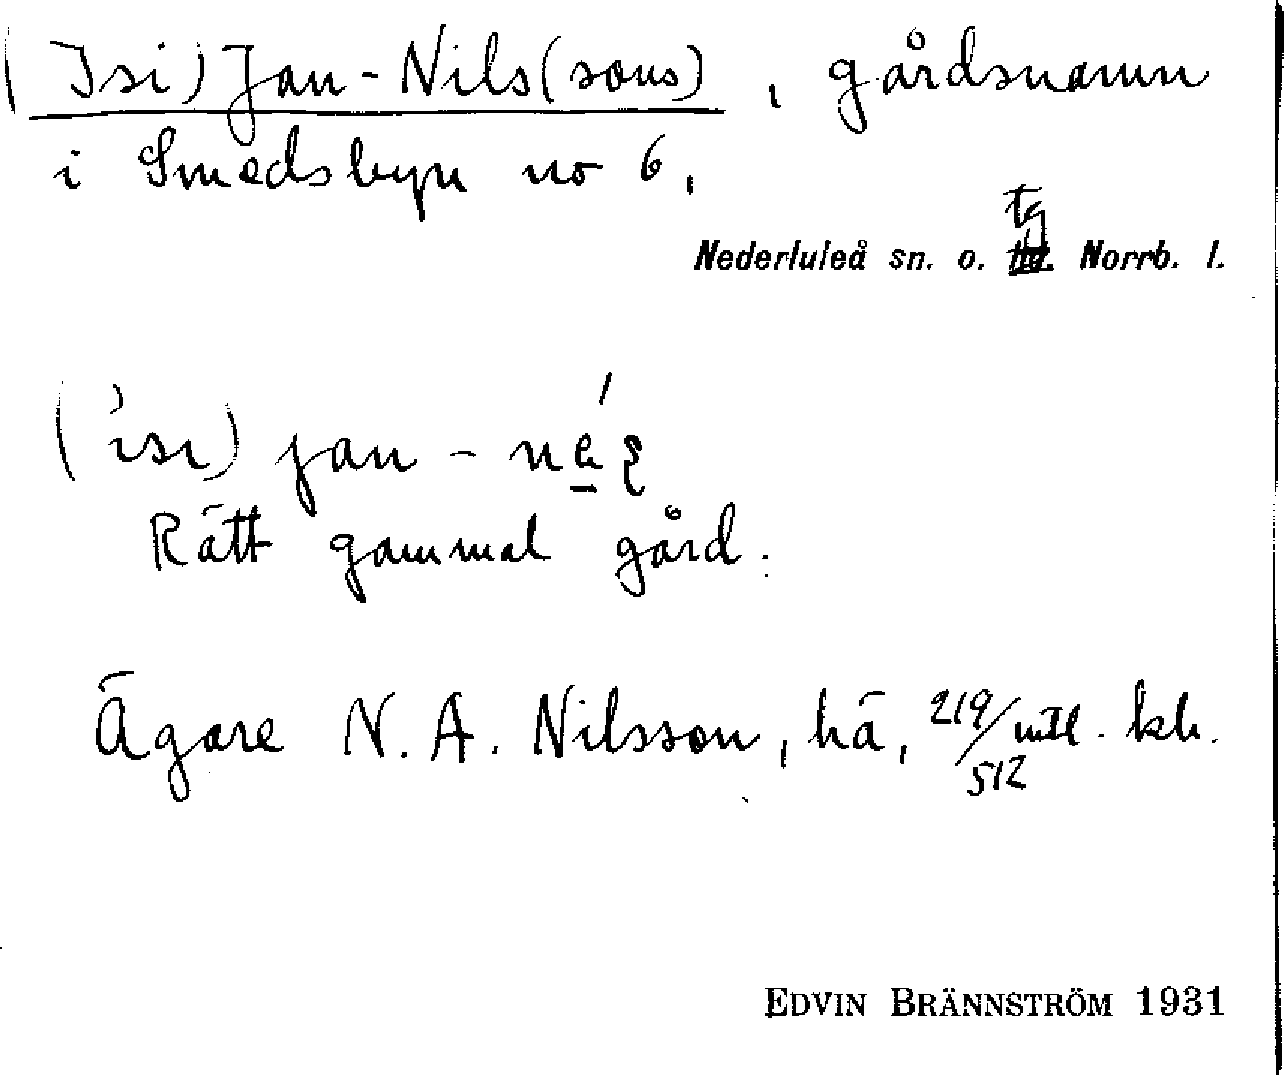 (Isi) Jan-Nils(sons), gårdsnamn
i Smedsbyn no 6,
Nederluleå sn. o. tg Norrb. l.
(ìsi) jan-
Rätt gammal gård.
Ägare N. A. Nilsson, hä, 219/512 mtl. kr.
EDVIN BRÄNNSTRÖM 1931